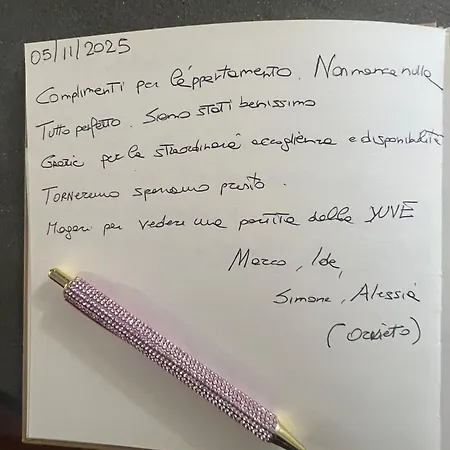 05/11/2025
Complimenti per l'appartamento. Non manca nulla
Tutto perfetto. Siamo stati benissimo
Grazie per la straordinaria accoglienza e disponibilità
Torneremo speriamo presto.
Magari per vedere una partita della JUVE
Marco, Ide,
Simone, Alessia
(Orvieto)